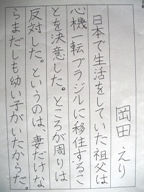 岡田 えり
日本で生活をしていた祖父は
心機一転ブラジルに移住するこ
とを決意した。ところが周りは
反対した。というのは、妻だけな
らまだしも幼い子がいたからだ。